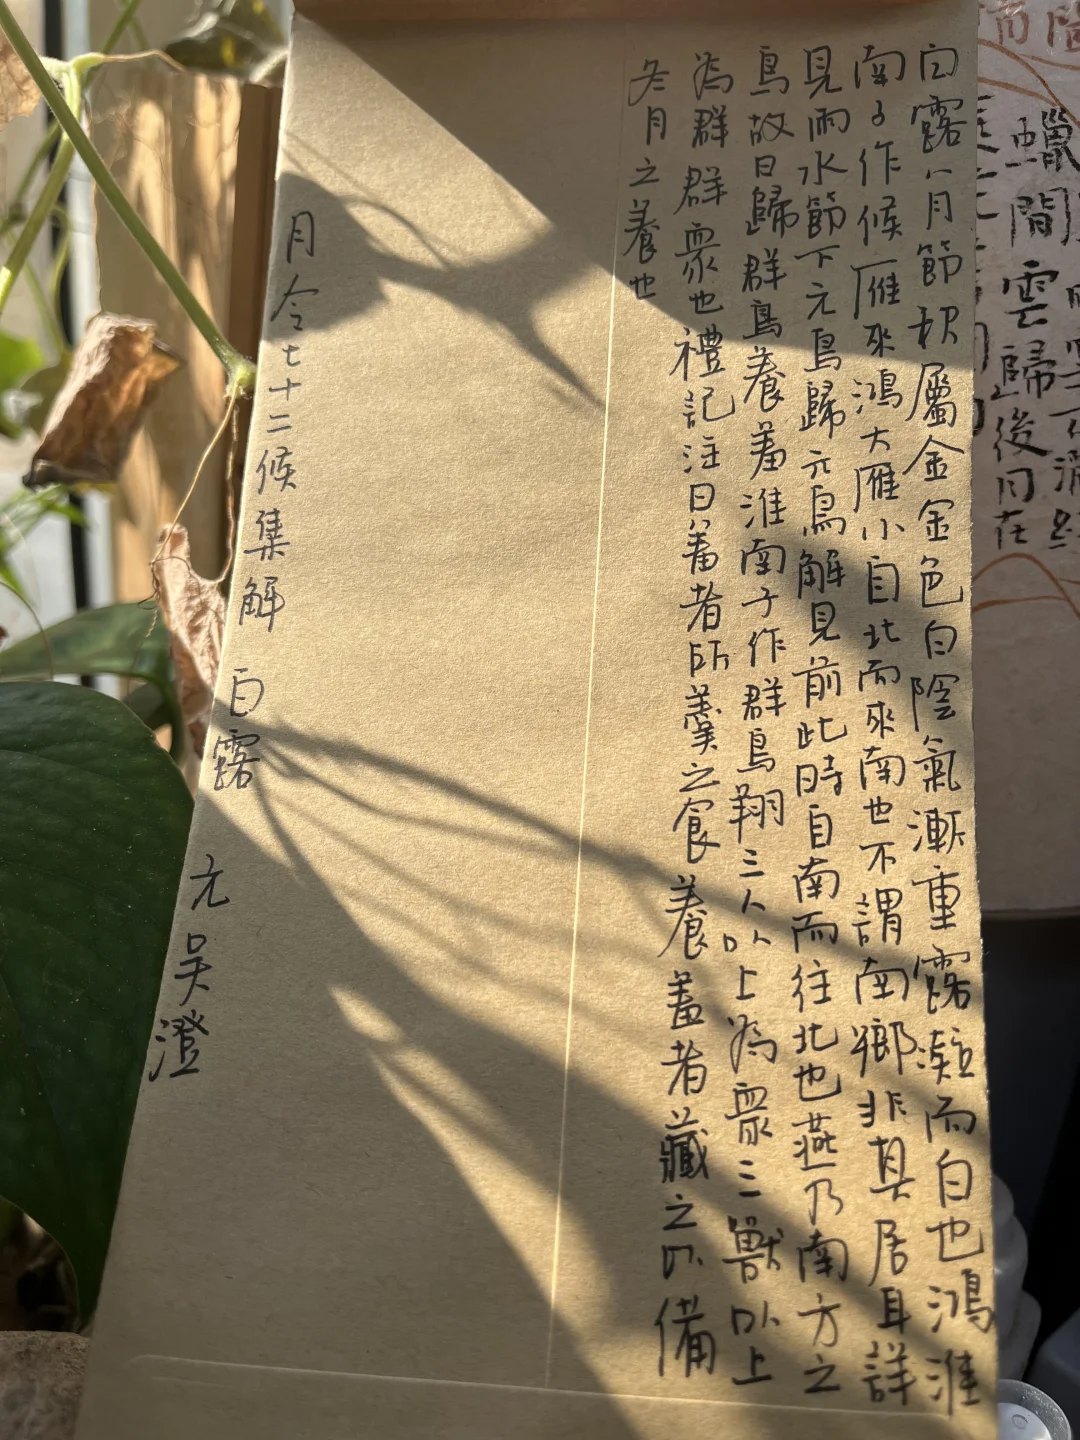 白露八月節秋屬金金色白陰氣漸重露凝而白也鴻淮
南子作候雁來鴻大雁小自北而來南也不謂南鄉非其居耳詳
見雨水節下元鳥歸元鳥解見前此時自南而往北也燕乃南方之
鳥故曰歸群鳥養羞淮南子作群鳥翔三人以上為眾三獸以上
為群群眾也禮記注曰羞者所羹之食養羞者藏之以備
冬月之養也
月令七十二候集解 白露 元 吳澄
蠟
間雲歸後月在